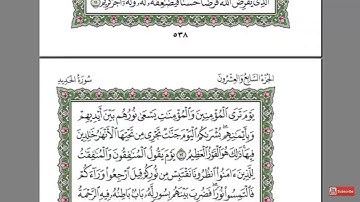 الَّذِي يُقْرِضُ اللَّهَ قَرْضًا حَسَنًا فَيُضَٰعِفَهُۥ لَهُۥ وَلَهُۥٓ أَجْرٌ كَرِيمٌ ١١
٥٣٨
الجُزْءُ السَّابِعُ وَالعِشْرُونَ سُورَةُ الحَدِيدِ
يَوْمَ تَرَى الْمُؤْمِنِينَ وَالْمُؤْمِنَٰتِ يَسْعَىٰ نُورُهُم بَيْنَ أَيْدِيهِمْ
وَبِأَيْمَٰنِهِم بُشْرَىٰكُمُ الْيَوْمَ جَنَّٰتٌ تَجْرِي مِن تَحْتِهَا الْأَنْهَٰرُ خَٰلِدِينَ
فِيهَا ذَٰلِكَ هُوَ الْفَوْزُ الْعَظِيمُ ١٢ يَوْمَ يَقُولُ الْمُنَٰفِقُونَ وَالْمُنَٰفِقَٰتُ
لِلَّذِينَ ءَامَنُوا انظُرُونَا نَقْتَبِسْ مِن نُّورِكُمْ قِيلَ ارْجِعُوا وَرَآءَكُمْ
فَالْتَمِسُوا نُورًا فَضُرِبَ بَيْنَهُم بِسُورٍ لَّهُۥ بَابٌ بَاطِنُهُۥ فِيهِ الرَّحْمَةُ